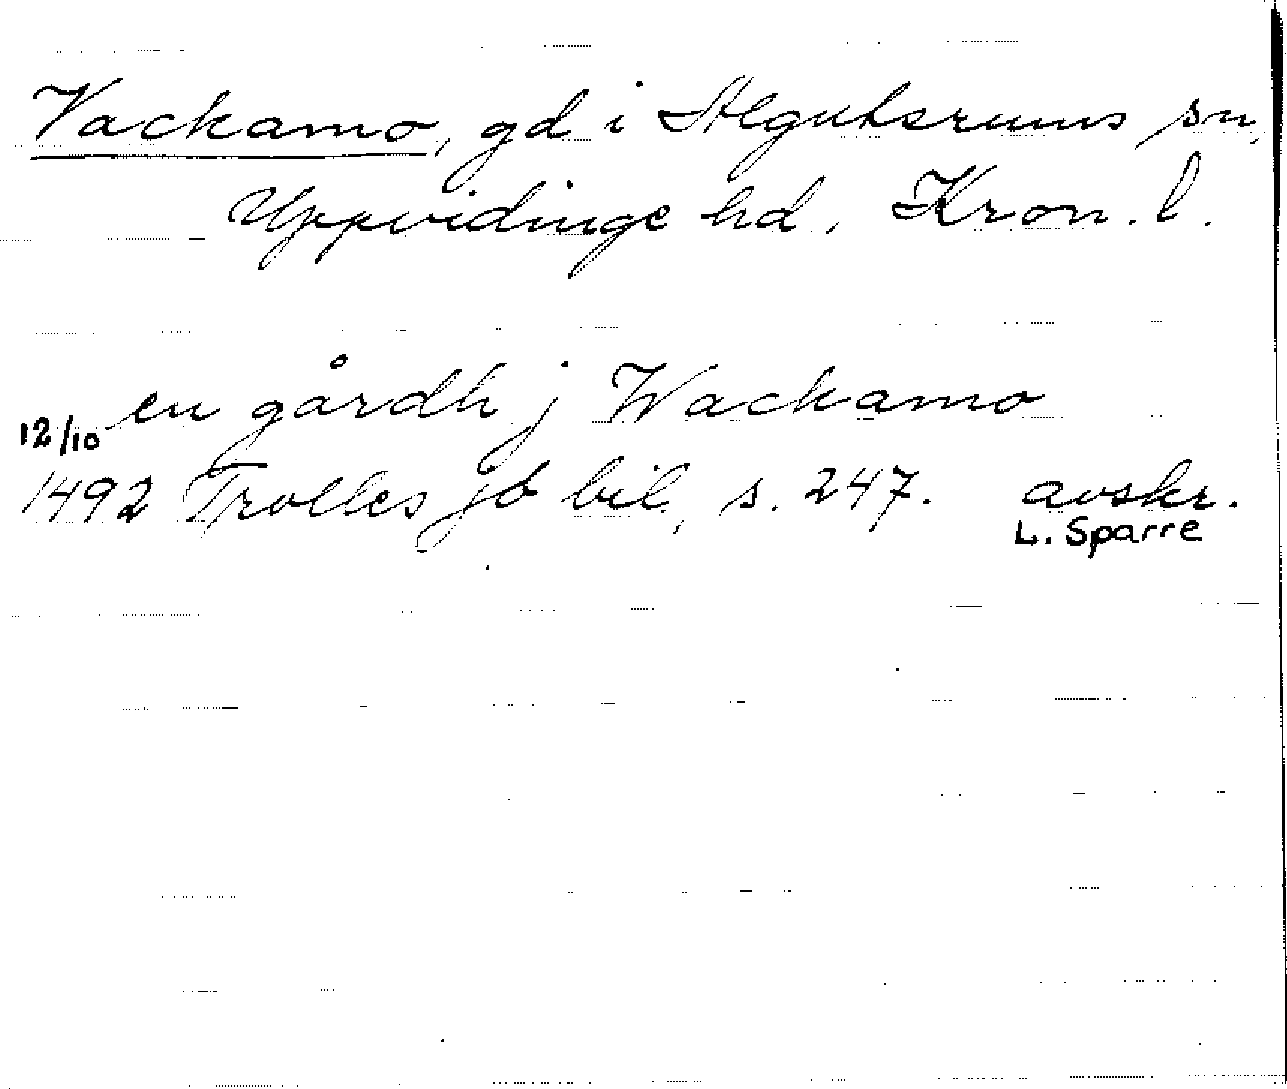 Vackamo, gd i Algutsrums sn,
Uppvidinge hd, Kron. l.
en gårdh j Wackamo
12/10
1492 Trolles jb bil, s. 247. avskr.
L. Sparre